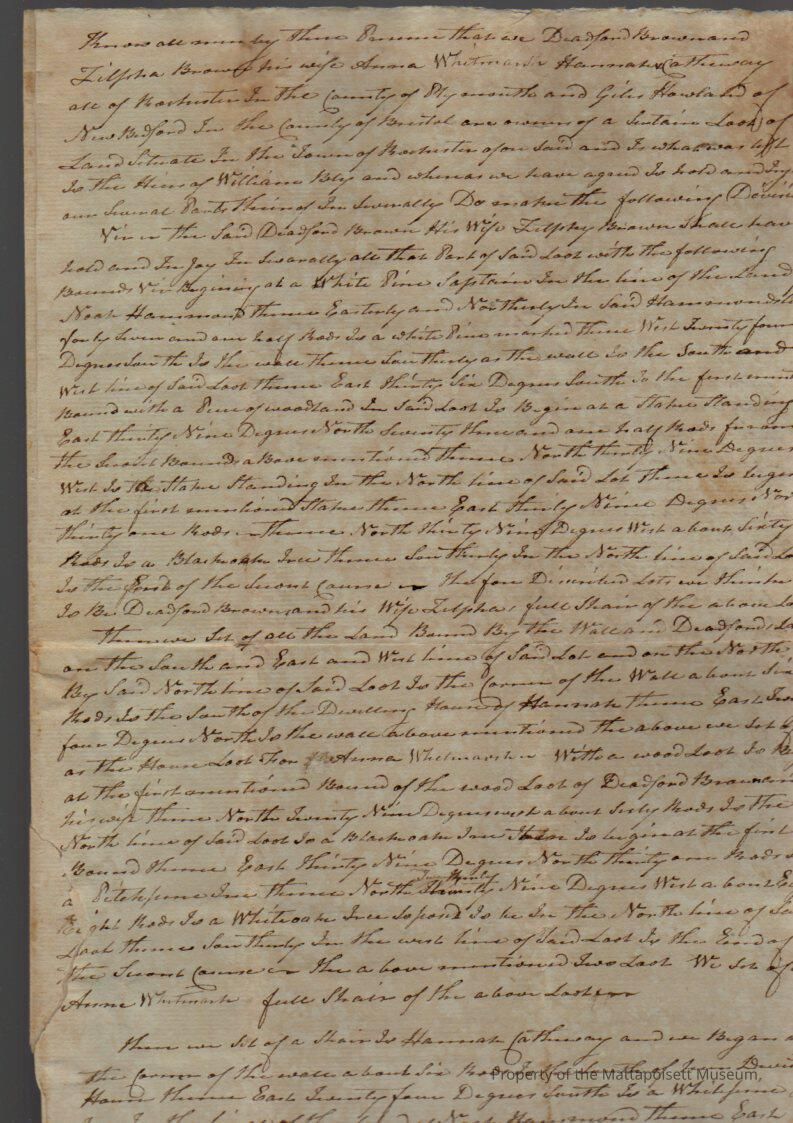 Know all men by these Presents that we Deadford Brown and
Zilpha Brown his wife Anna Whitmarsh Hannah Catheway
all of Rochester In the County of Plymouth and Giles Howland of
New Bedford In the County of Bristol are owners of a Sertain Loot of
Land Situate In the Town of Rochester afore Said and Is what was left
to the Hiers of William Bly and whereas we have agreed to hold and Injoy
our Several Parts thereof In Severally Do make the following Devision
Viz the Said Deadford Brown His Wife Zilphy Brown Shall have
hold and InJoy In Sevarally all that Part of Said Loot with the following
Bounds Viz Begining at a White Pine Saptain In the line of the Land
Noah Hammond thence Easterly and Northerly In Said Hammonds
forty Seven and one half Rods to a white Pine marked thence West Twenty four
Degrees South to the wall thence Southerly as the wall to the South and
West line of Said Loot thence East thirty Six Degrees South to the first
Bound with a Peice of woodland In Said Loot to Begin at a Stake Standing
East thirty Nine Degrees North Seventy three and one half Rods from
the Second Bounds above mentioned thence North thirty Nine Degrees
West to the Stake Standing In the North line of Said Lot thence to begin
at the first mentioned Stake thence East thirty Nine Degrees
thirty one Rods thence North thirty Nine Degrees West about Sixty
Rods to a Blackoake Tree thence Southerly In the North line of Said
to the End of the Second Course the fore Described Lots we think
to Be Deadford Brown and his Wife Zilpha full Shair of the above
then we Set of all the Land Bound By the Wall and Deadfords
on the South and East and West line of Said Lot and on the North
By Said North line of Said Loot to the Corner of the Wall about Six
Rods to the South of the Dwelling House of Hannah thence East
four Degrees North to the wall above mentioned the above we Set
as the House Loot For Anna Whitmarsh With a wood Loot to
at the first mentioned Bound of the wood Loot of Deadford Brown
his wife thence North Twenty Nine Degrees west about Sixty Rods to the
North line of Said Loot to a Blackoake Tree then to begin at the first
Bound thence East thirty Nine Degrees North thirty one Rods
a Pitchpine Tree thence North Twenty Nine Degrees West about
Eight Rods to a Whiteoake Tree Soposed to be In the North line of
Loot thence Southerly In the west line of Said Loot to the End of
the Second Course the above mentioned Two Loot We Set of
Anne Whitmarsh full Shair of the above Loot
then we Set of a Shair to Hannah Catheway and we Began
the Corner of the wall about Six Rods South of
House thence East Twenty four Degrees South to a Whitepine
Noah Hammond thence East
Property of the Mattapoisett Museum,